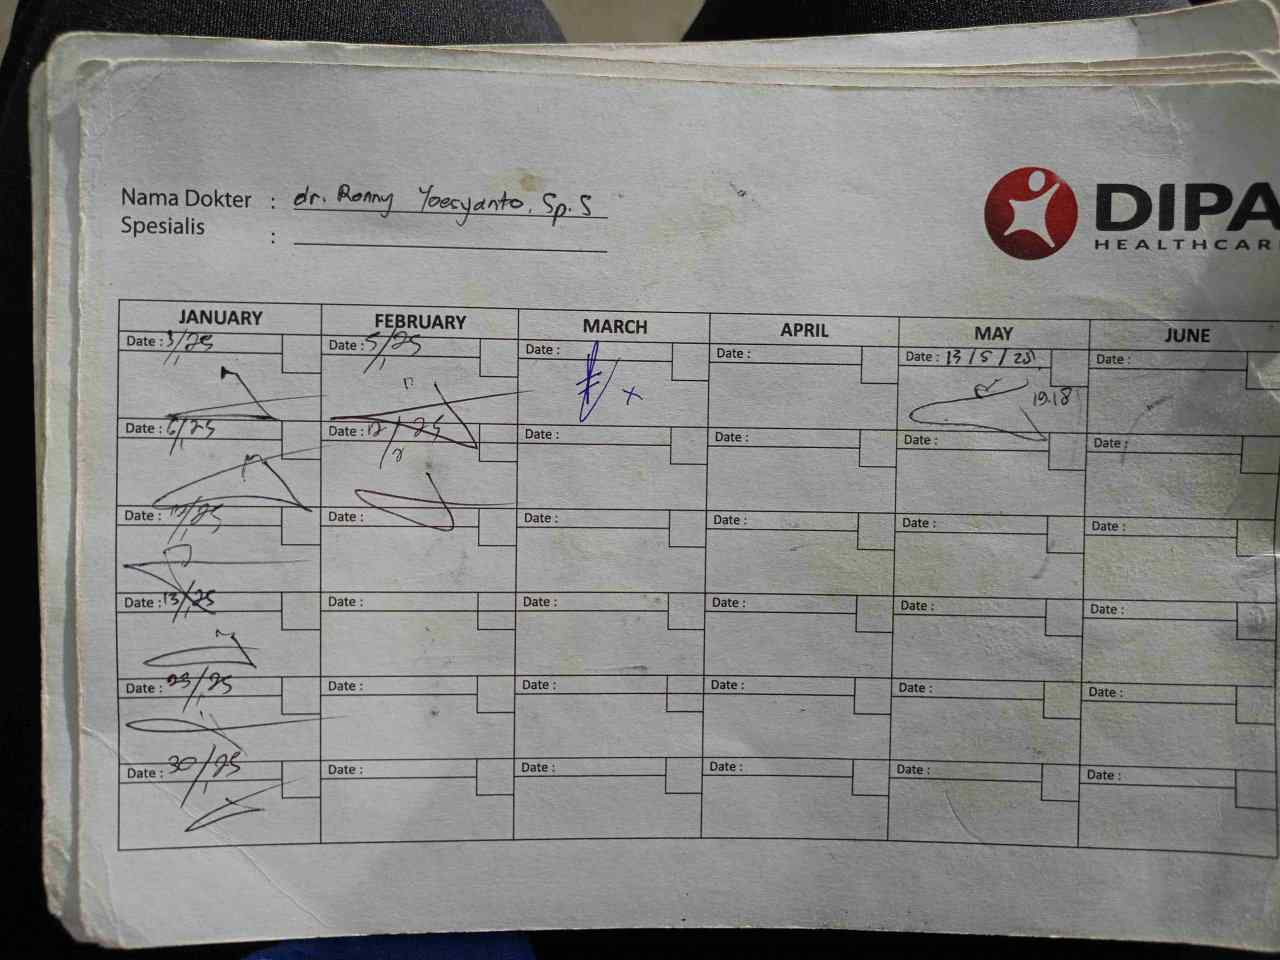 Nama Dokter : dr. Ronny Yoesyanto. Sp.S
Spesialis :
DIPA
HEALTHCAR
JANUARY FEBRUARY MARCH APRIL MAY JUNE
Date : 3/25 Date : 5/25 Date : Date : Date : 13/5/25 Date :
19.18
Date : 6/25 Date : 12/25 Date : Date : Date : Date :
2
Date : Date : Date : Date : Date : Date :
Date : 13/25 Date : Date : Date : Date : Date :
Date : 23/25 Date : Date : Date : Date : Date :
Date : 30/25 Date : Date : Date : Date : Date :